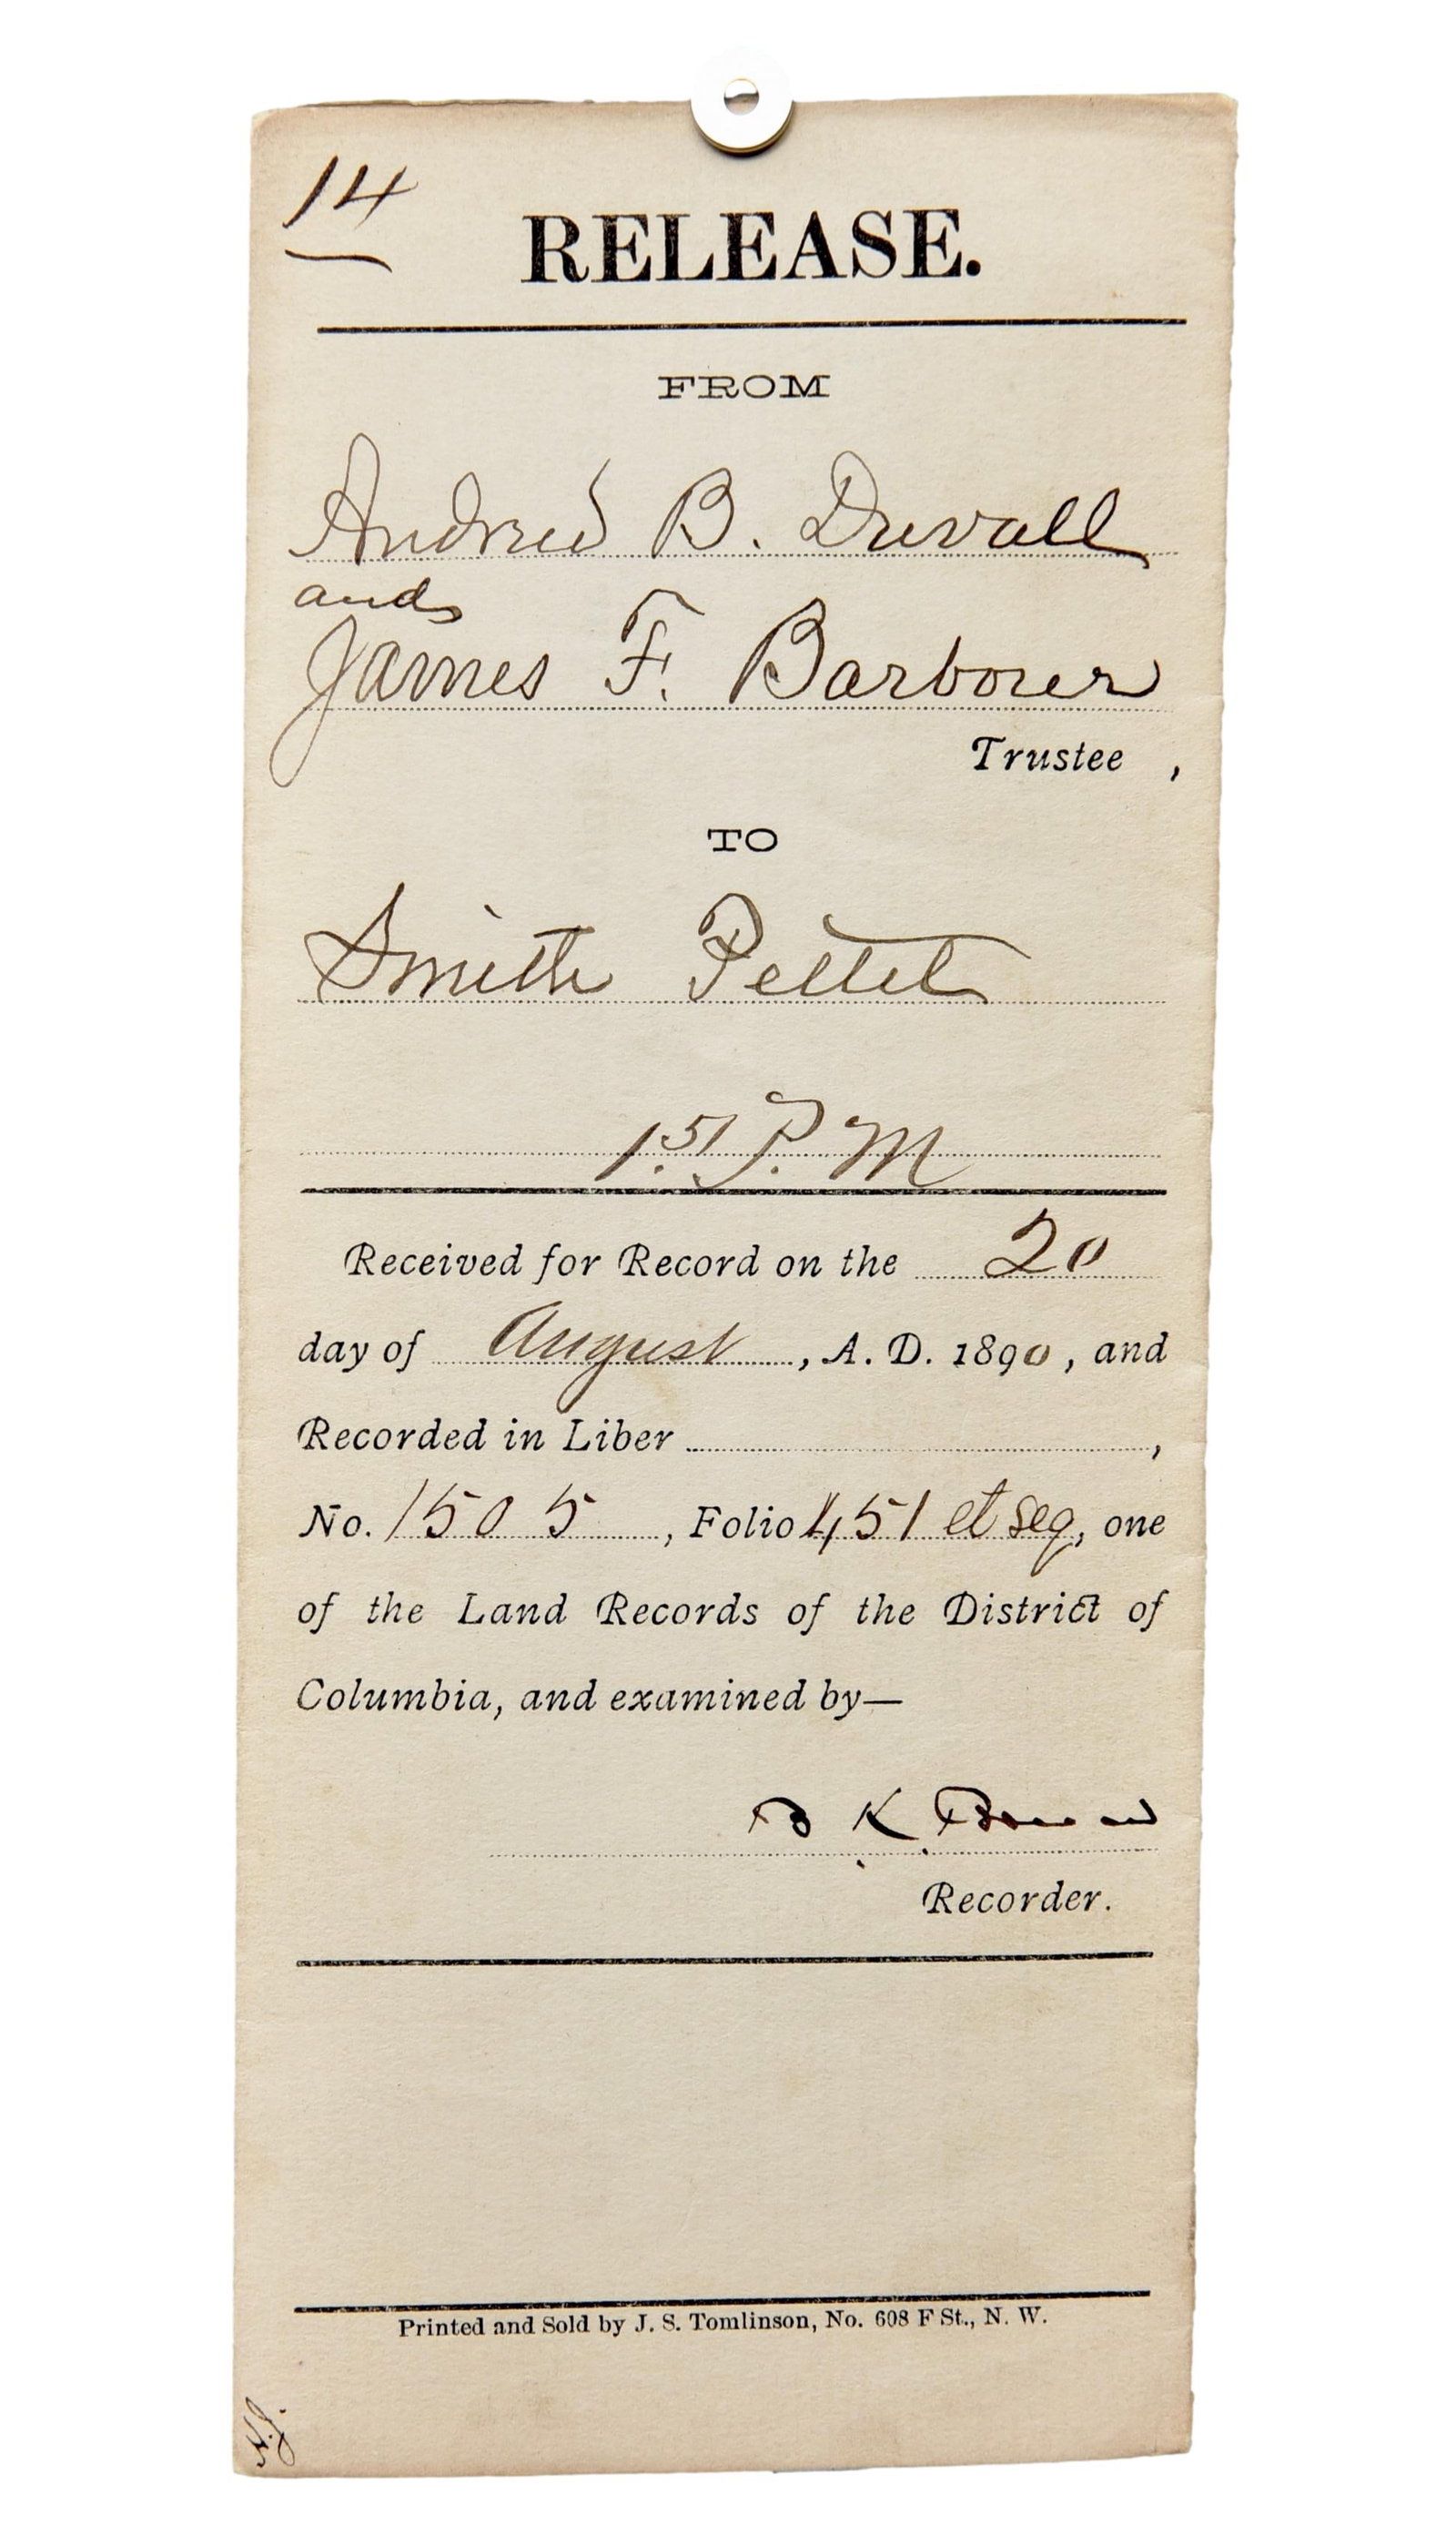 14
RELEASE.
FROM
Andrew B. Duvall
and
James F. Barbour
Trustee ,
TO
Smith Pettit
1.51 P. M
Received for Record on the 20
day of August, A. D. 1890, and
Recorded in Liber ,
No. 1505, Folio 451 et seq, one
of the Land Records of the District of
Columbia, and examined by—
B K Bruce
Recorder.
Printed and Sold by J. S. Tomlinson, No. 608 F St., N. W.